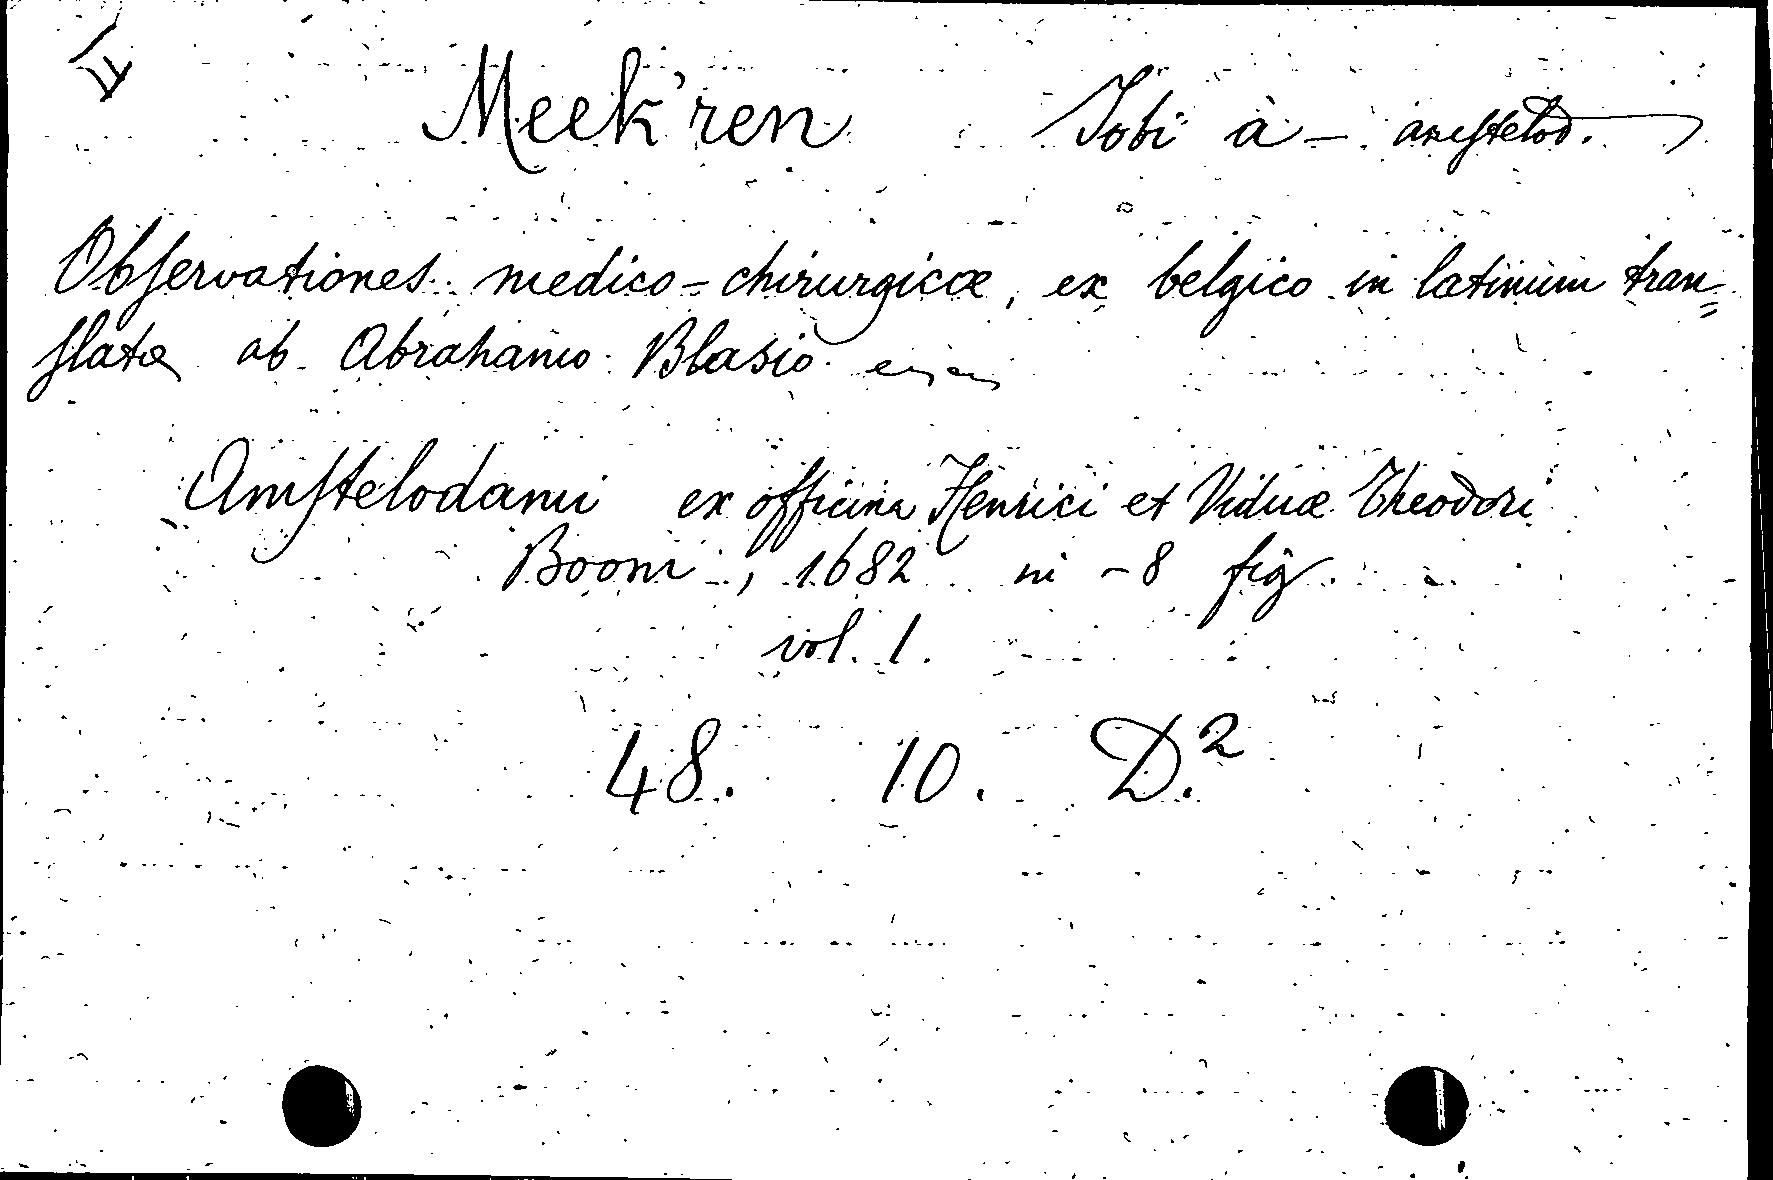 Meek'ren Jobi à - amstelod.
Observationes medico-chirurgicæ, ex belgico in latinum tran=
slatæ ab Abrahamo Blasio
Amstelodami ex officina Henrici et Viduæ Theodori
Boom, 1682 in-8 fig.
vol. 1.
48. 10. D.²